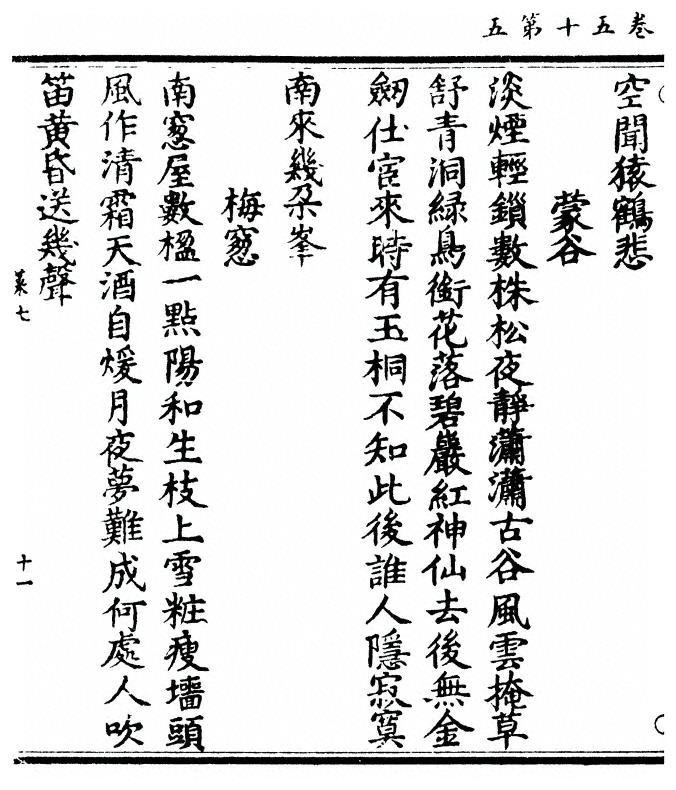 卷五十第五
空聞猿鶴悲
蒙谷
淡煙輕鎖數株松夜靜瀟瀟古谷風雲掩草
舒青洞綠鳥銜花落碧巖紅神仙去後無金
劔仕宦來時有玉桐不知此後誰人隱寂寞
南來幾朶峯
梅窓
南窓屋數楹一點陽和生枝上雪粧瘦墻頭
風作清霜天酒自煖月夜夢難成何處人吹
笛黃昏送幾聲
十一